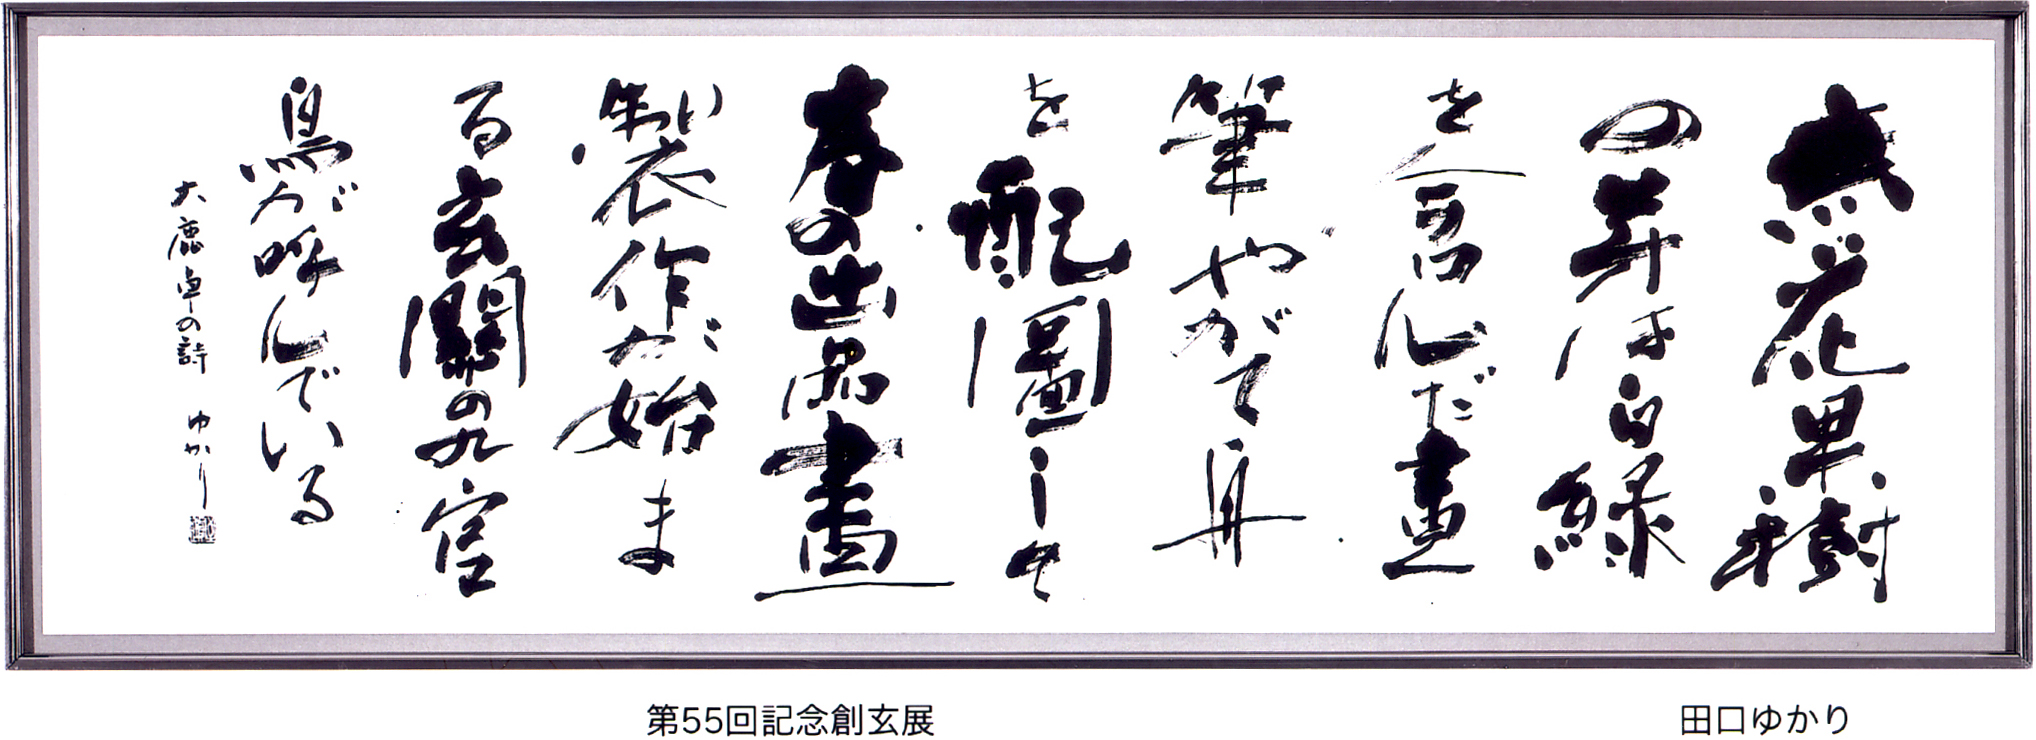 無花果樹
の芽は白緑
を含んだ畫
筆やがて
を配圖して
春の出品畫
製作が始ま
る玄關の九官
鳥が呼んでいる
大鹿卓の詩 ゆかり
第55回記念創玄展
田口ゆかり